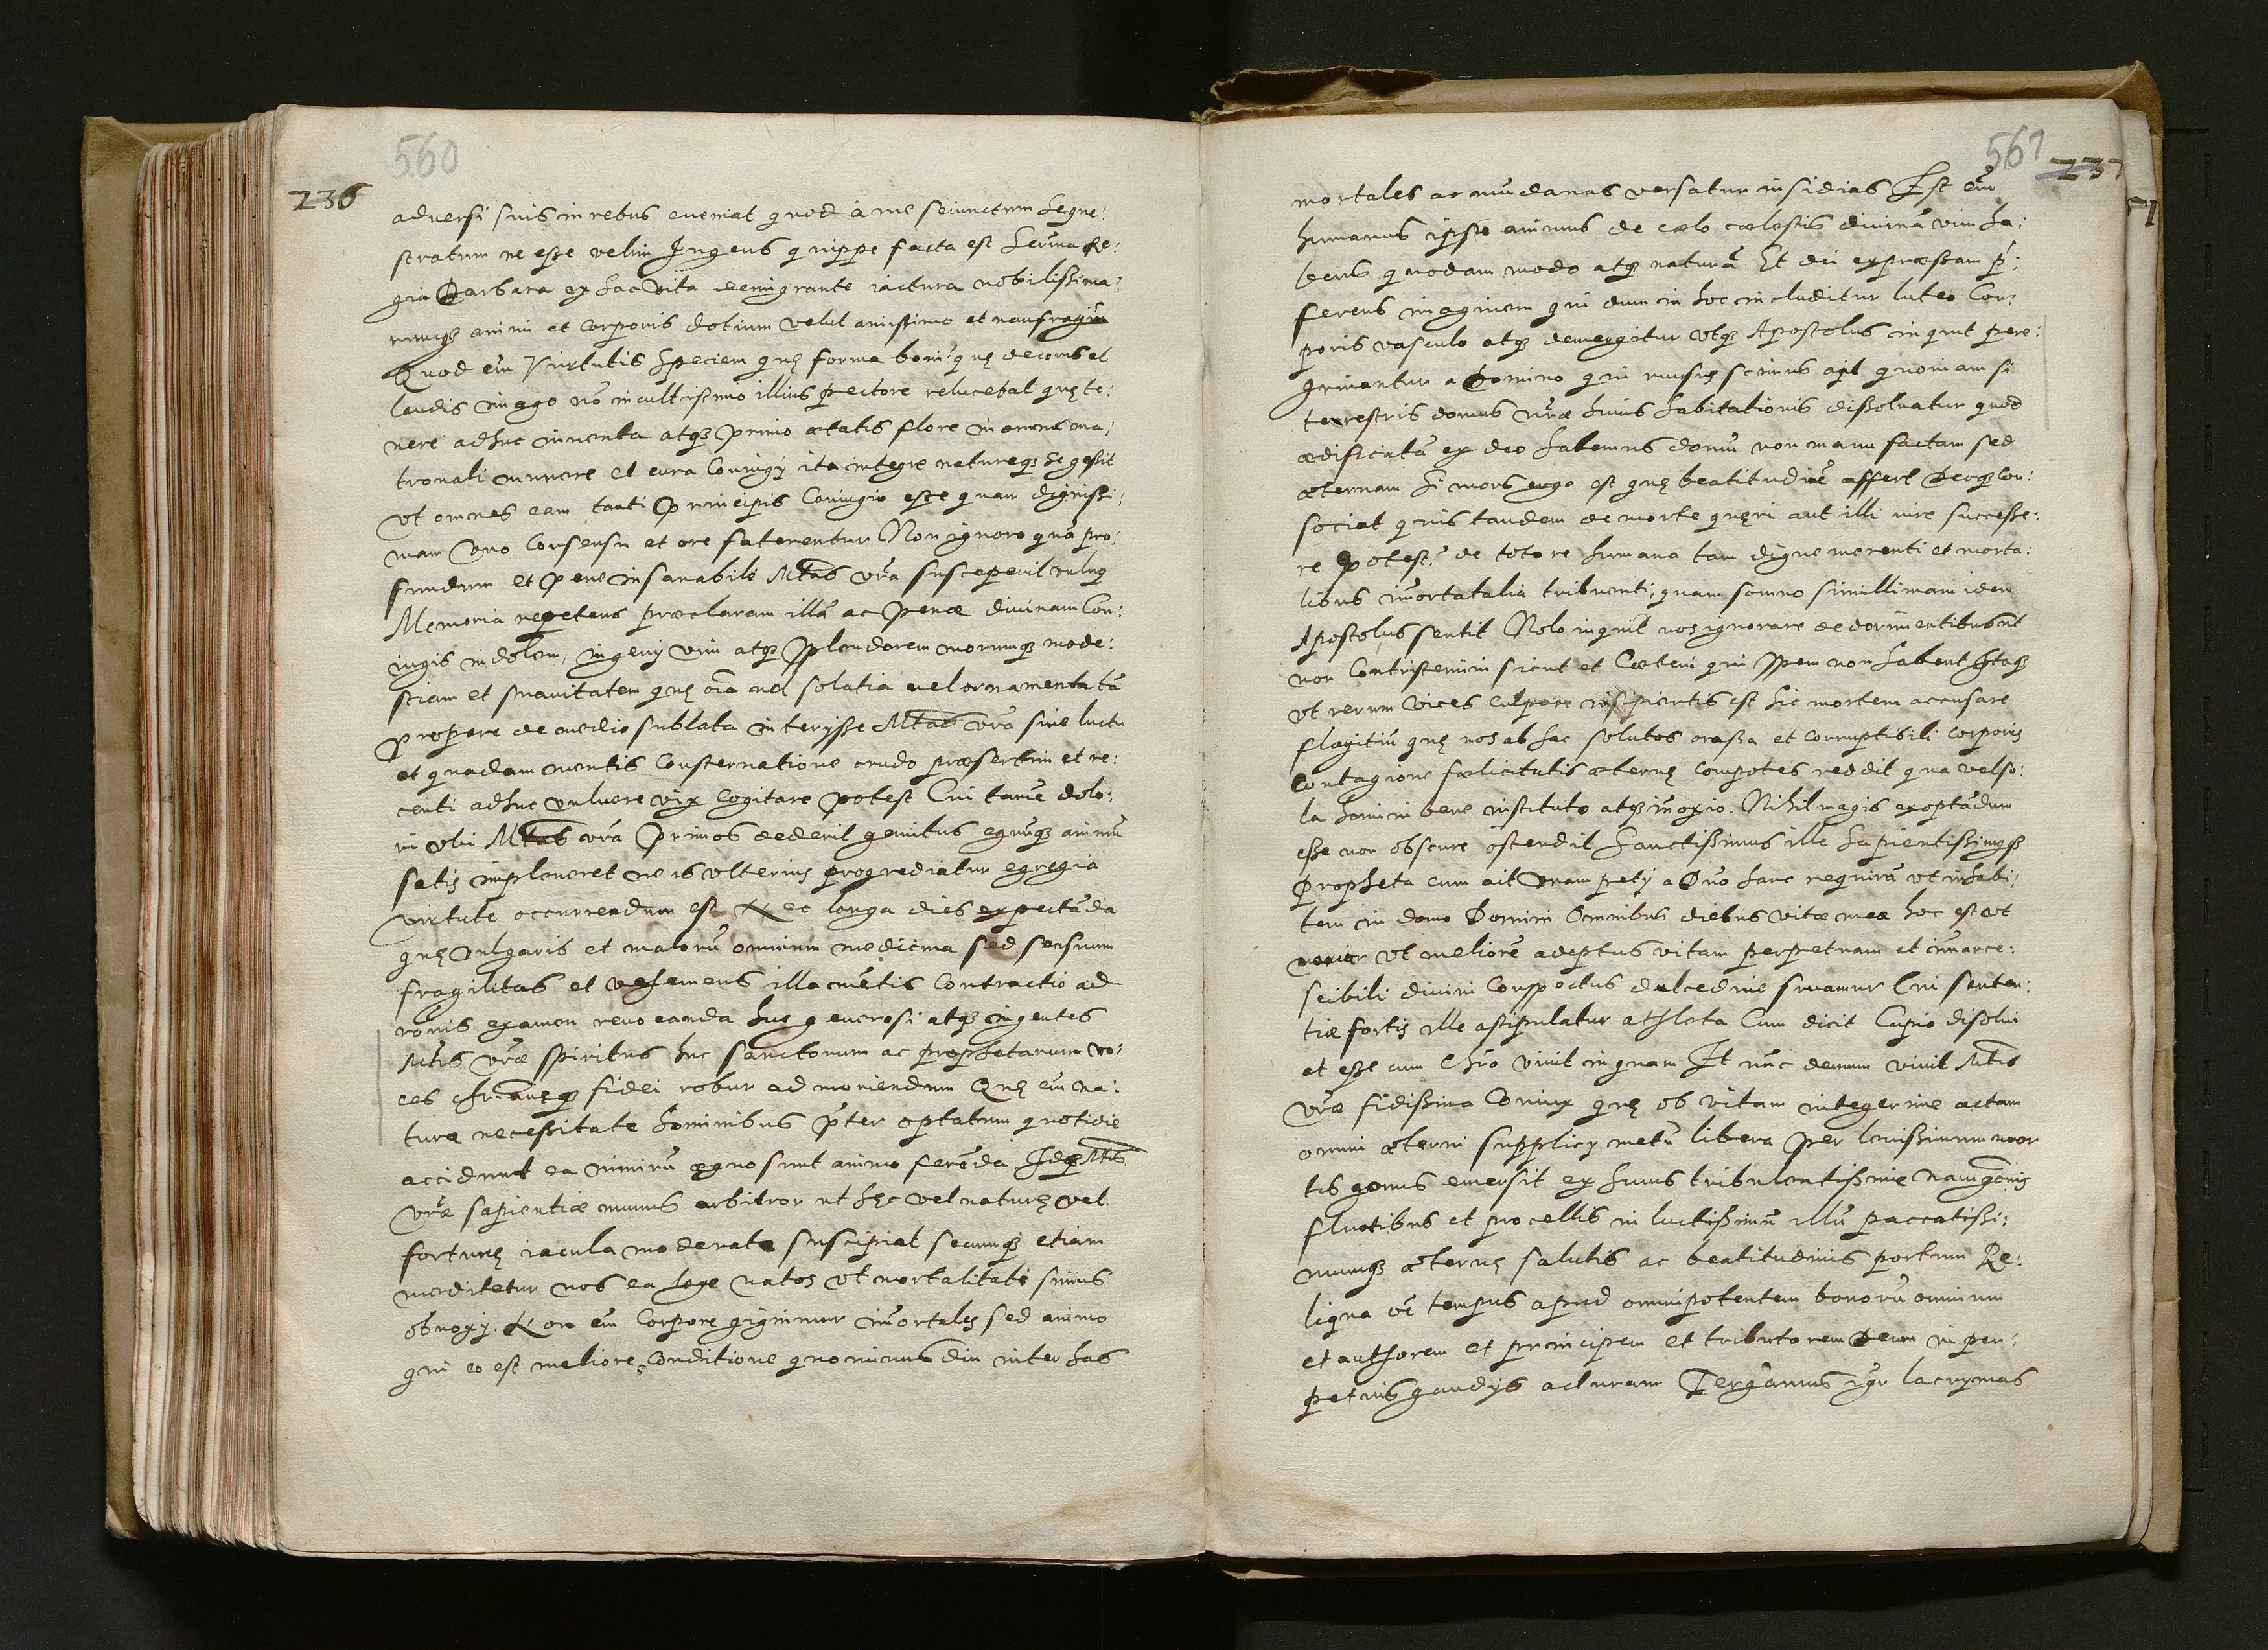 560
236
adversi suis in rebus eveniat quod à me seiunctum seque:
stratum ne esse velim Ingens quippe facta est Serma Re:
gia Barbara ex hac vita demigrante iactura nobilissima:
rumqz animi et corporis dotium velut amissimo et naufragiũ
Quod em̃ Virtutis speciem quę forma boni quę decoris et
laudis imago nõ in cultissimo illius pectore relucebat quę te:
nere adhuc inventa atqz primo ætatis flore in omne ma:
tronali munere et cura Coniugÿ ita integre natureqz se gessit
Vt omnes eam tanti Principis Coniugio esse quam dignissi:
mam Vno Consensu et ore faterentur Non ignoro quã pro:
fundum et pene insanabile Mtas vr̃a susceperit vulnq
Memoria repetens præclaram illã ac penæ divinam Con:
iugis indolem, ingenÿ vim atqz splendorem morumqz mode:
stiam et suavitatem quę oĩa vel solatia vel ornamenta tã
propere de medio sublata interÿsse Mtas vr̃a sine luctu
et quadam mentis Consternatione crudo præsertim et re:
centi adhuc vulnere vix cogitare potest Cui tamẽ dolo:
ri vbi Mtas vr̃a Primos dederit gemitus egrũqz animũ
satis imploveret ne is vlterius progrediatur egregia
virtute occurrendum est Nec longa dies expectãda
quę Vulgaris et malorũ omnium medicina sed sensuum
fragilitas et vehemens illa mẽtis Contractio ad
ronis examen revocanda huc generosi atqz ingentes
Mtis vr̃æ spiritus huc sanctorum ac prophetarum vo:
ces Chr̃ianęqz fidei robur ad moniendum Quę em̃ na:
turæ necessitate hominibus p̃ter optatum quotidie
accidunt ea nimirũ æquo sunt animo ferẽda Idqz Mtis
vr̃æ sapientiæ munus arbitror ut hęc vel naturę vel
fortunę iacula moderate suscipiat secumqz etiam
meditetur nos ea lege natos vt mortalitati simus
obnoxÿ. Non em̃ Corpore gignimur im̃ortales sed animo
qui eo est meliore Conditione quo minus diu inter has
561
237
mortales ac mũdanas versatur insidias Est em̃
humanus ipse animus de cælo cælestis divinã vim ha:
bens quodam modo atqz naturã Et dei expressam p̃:
ferens imaginem qui dum in hoc includitur luteo Cor:
poris vasculo atqz demergitur vtqz Apostolus inquit pere:
grinantur a Domino qui rursus scimus ait quoniam si
terrestris domus nr̃æ huius habitationis dissolvatur quod
ædificatã ex deo habemus domũ non manu factam sed
æternam Si mors ergo est quę beatitudinẽ affert Deoqz con:
sociat quis tandem de morte quęri aut illi iure succense:
re potest? de tota re humana tam digne merenti et morta:
libus im̃ortatalia tribuenti, quam somno simillimam idem
Apostolus sentit Nolo inquit vos ignorare de dormientibus ut
non Contristemini sicut et Cæteri qui spem non habent Itaqz
vt rerum vices culpare insipientis est sic mortem accusare
flagitiũ quę nos ab hac solutos crassa et corruptibili corporis
Contagione fælicitatis æternę compotes reddit qua vel so:
la homini bene instituto atqz in̂oxio. Nihil magis exoptãdum
esse non obscure ostendit Sanctissimus ille Sapientissimqqz
Propheta cum ait Vnam petÿ a Dño hanc requirã vt inhabi:
tem in domo Domini Omnibus diebus vitæ meæ hoc est vt
moriar vt meliorẽ adeptus vitam perpetuam et im̃arce:
scibili divini Conspectus dulcedine fruamur Cui senten:
tiæ fortis ille astipulatur athleta Cum dicit Cupio disolui
et esse cum Chr̃o vivit inquam Et nũc demum vivit Mtis
vr̃æ fidissima Coniux quę ob vitam integerime actam
omni æterni supplicÿ metũ libera per levissimum mor
tis genus emersit ex huius tribulentissimę navigõnis
fluctibus et procellis in luctissimũ illũ paccatissi:
mumqz æternę salutis ac beatitudinis portum Re:
liqua oẽ tempus apud omnipotentem bonorũ omnium
et authorem et principem et tributorem Deum in per:
petuis gaudÿs acturam Tergamus igr̃ lacrymas